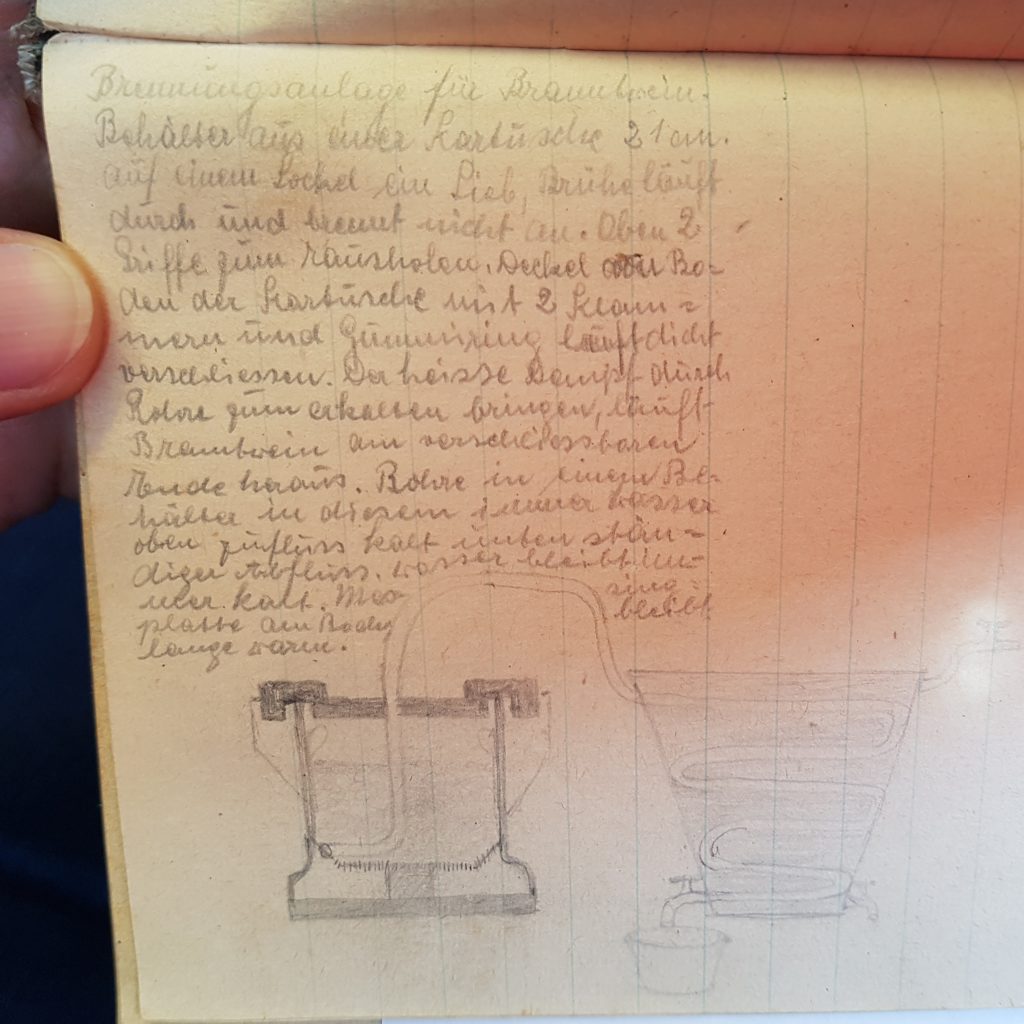 Brennungsanlage für Branntwein.
Behälter aus einer Kartusche 21 cm.
auf einem Sockel ein Sieb, Brühe läuft
durch und brennt nicht an. Oben 2
Griffe zum rausholen. Deckel Bo-
den der Kartusche mit 2 Klam-
mern und Gummiring luftdicht
verschliessen. Der heisse Dampf durch
Rohre zum erkalten bringen, läuft
Branntwein am verschliessbaren
Ende heraus. Rohre in einem Be-
hälter in diesem immer Wasser
oben zufluss kalt unten stän-
diger Abfluss. Wasser bleibt im-
mer kalt. Mes sing-
platte am Boden bleibt
lange warm.